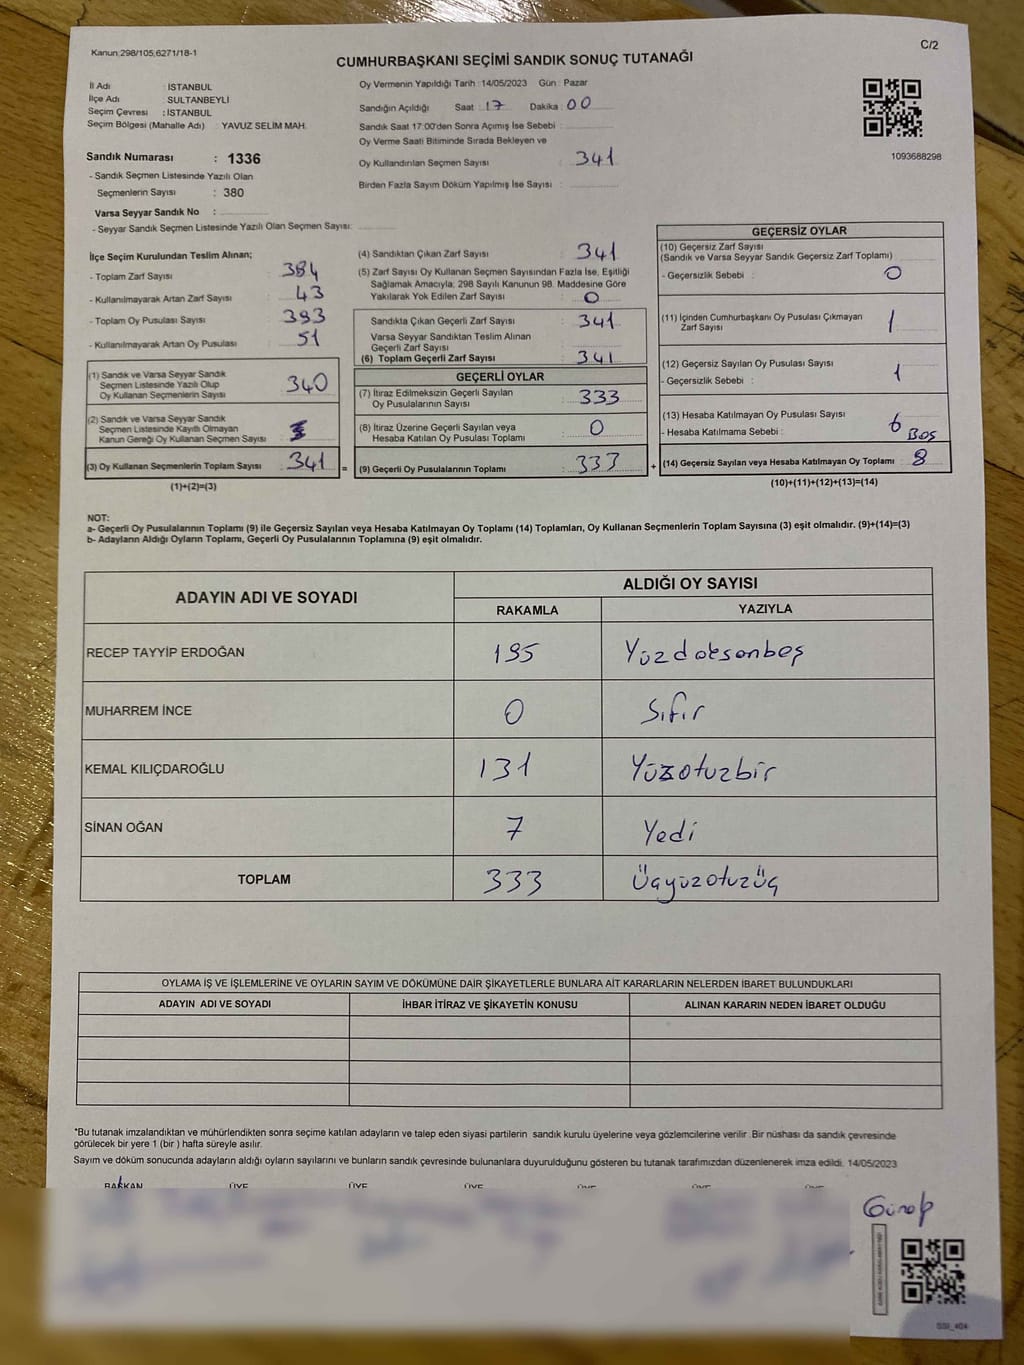 Kanun;298/105,6271/18-1
C/2
CUMHURBAŞKANI SEÇİMİ SANDIK SONUÇ TUTANAĞI
İl Adı : İSTANBUL
İlçe Adı : SULTANBEYLİ
Seçim Çevresi : İSTANBUL
Seçim Bölgesi (Mahalle Adı) : YAVUZ SELİM MAH.
Sandık Numarası : 1336
- Sandık Seçmen Listesinde Yazılı Olan
Seçmenlerin Sayısı : 380
Varsa Seyyar Sandık No :
- Seyyar Sandık Seçmen Listesinde Yazılı Olan Seçmen Sayısı:
Oy Vermenin Yapıldığı Tarih : 14/05/2023 Gün : Pazar
Sandığın Açıldığı Saat : 17 Dakika : 00
Sandık Saat 17:00'den Sonra Açımış İse Sebebi :
Oy Verme Saati Bitiminde Sırada Bekleyen ve
Oy Kullandırılan Seçmen Sayısı : 341
Birden Fazla Sayım Döküm Yapılmış İse Sayısı :
1093688298
İlçe Seçim Kurulundan Teslim Alınan;
- Toplam Zarf Sayısı : 384
- Kullanılmayarak Artan Zarf Sayısı : 43
- Toplam Oy Pusulası Sayısı : 393
- Kullanılmayarak Artan Oy Pusulası : 51
(1) Sandık ve Varsa Seyyar Sandık
Seçmen Listesinde Yazılı Olup
Oy Kullanan Seçmenlerin Sayısı : 340
(2) Sandık ve Varsa Seyyar Sandık
Seçmen Listesinde Kayıtlı Olmayan
Kanun Gereği Oy Kullanan Seçmen Sayısı :
(3) Oy Kullanan Seçmenlerin Toplam Sayısı : 341 =
(1)+(2)=(3)
(4) Sandıktan Çıkan Zarf Sayısı : 341
(5) Zarf Sayısı Oy Kullanan Seçmen Sayısından Fazla İse, Eşitliği
Sağlamak Amacıyla, 298 Sayılı Kanunun 98. Maddesine Göre
Yakılarak Yok Edilen Zarf Sayısı : 0
Sandıkta Çıkan Geçerli Zarf Sayısı : 341
Varsa Seyyar Sandıktan Teslim Alınan
Geçerli Zarf Sayısı :
(6) Toplam Geçerli Zarf Sayısı : 341
GEÇERLİ OYLAR
(7) İtiraz Edilmeksizin Geçerli Sayılan
Oy Pusulalarının Sayısı : 333
(8) İtiraz Üzerine Geçerli Sayılan veya
Hesaba Katılan Oy Pusulası Toplamı : 0
(9) Geçerli Oy Pusulalarının Toplamı : 333 +
GEÇERSİZ OYLAR
(10) Geçersiz Zarf Sayısı
(Sandık ve Varsa Seyyar Sandık Geçersiz Zarf Toplamı)
- Geçersizlik Sebebi : 0
(11) İçinden Cumhurbaşkanı Oy Pusulası Çıkmayan
Zarf Sayısı : 1
(12) Geçersiz Sayılan Oy Pusulası Sayısı
- Geçersizlik Sebebi : 1
(13) Hesaba Katılmayan Oy Pusulası Sayısı
- Hesaba Katılmama Sebebi : 6 Boş
(14) Geçersiz Sayılan veya Hesaba Katılmayan Oy Toplamı : 8
(10)+(11)+(12)+(13)=(14)
NOT:
a- Geçerli Oy Pusulalarının Toplamı (9) ile Geçersiz Sayılan veya Hesaba Katılmayan Oy Toplamı (14) Toplamları, Oy Kullanan Seçmenlerin Toplam Sayısına (3) eşit olmalıdır. (9)+(14)=(3)
b- Adayların Aldığı Oyların Toplamı, Geçerli Oy Pusulalarının Toplamına (9) eşit olmalıdır.
ADAYIN ADI VE SOYADI
ALDIĞI OY SAYISI
RAKAMLA YAZIYLA
RECEP TAYYİP ERDOĞAN 195 Yüzdoksanbeş
MUHARREM İNCE 0 Sıfır
KEMAL KILIÇDAROĞLU 131 Yüzotuzbir
SİNAN OĞAN 7 Yedi
TOPLAM 333 Üçyüzotuzüç
OYLAMA İŞ VE İŞLEMLERİNE VE OYLARIN SAYIM VE DÖKÜMÜNE DAİR ŞİKAYETLERLE BUNLARA AİT KARARLARIN NELERDEN İBARET BULUNDUKLARI
ADAYIN ADI VE SOYADI İHBAR İTİRAZ VE ŞİKAYETİN KONUSU ALINAN KARARIN NEDEN İBARET OLDUĞU
*Bu tutanak imzalandıktan ve mühürlendikten sonra seçime katılan adayların ve talep eden siyasi partilerin sandık kurulu üyelerine veya gözlemcilerine verilir .Bir nüshası da sandık çevresinde
görülecek bir yere 1 (bir ) hafta süreyle asılır.
Sayım ve döküm sonucunda adayların aldığı oyların sayılarını ve bunların sandık çevresinde bulunanlara duyurulduğunu gösteren bu tutanak tarafımızdan düzenlenerek imza edildi. 14/05/2023
BAŞKAN ÜYE ÜYE ÜYE ÜYE ÜYE ÜYE
SSI_404